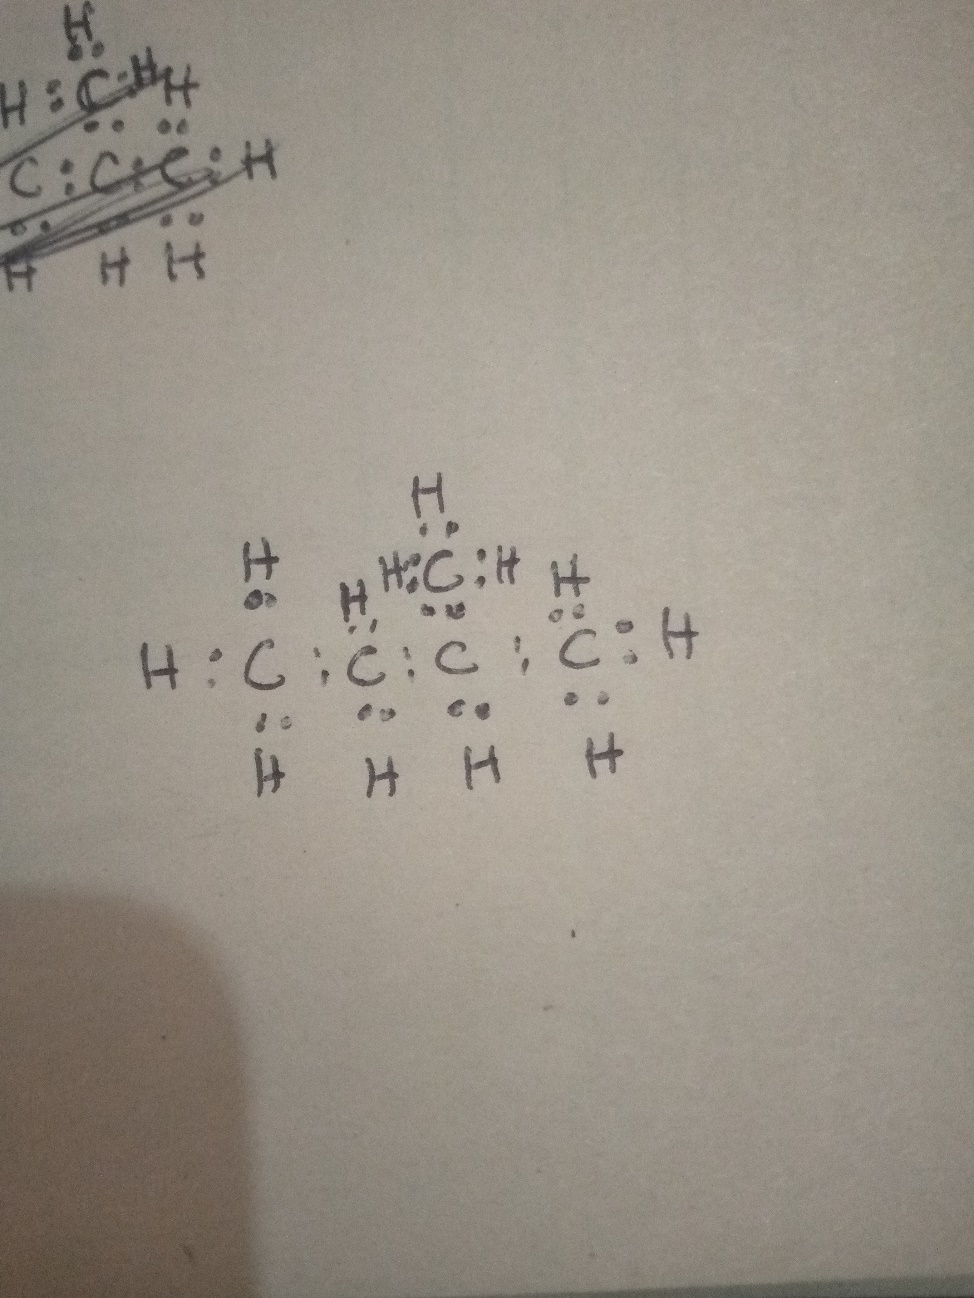 H
H : C : H H
C : C : C : H
H H H
H
H H : C : H H
H
H : C : C : C : C : H
H H H H